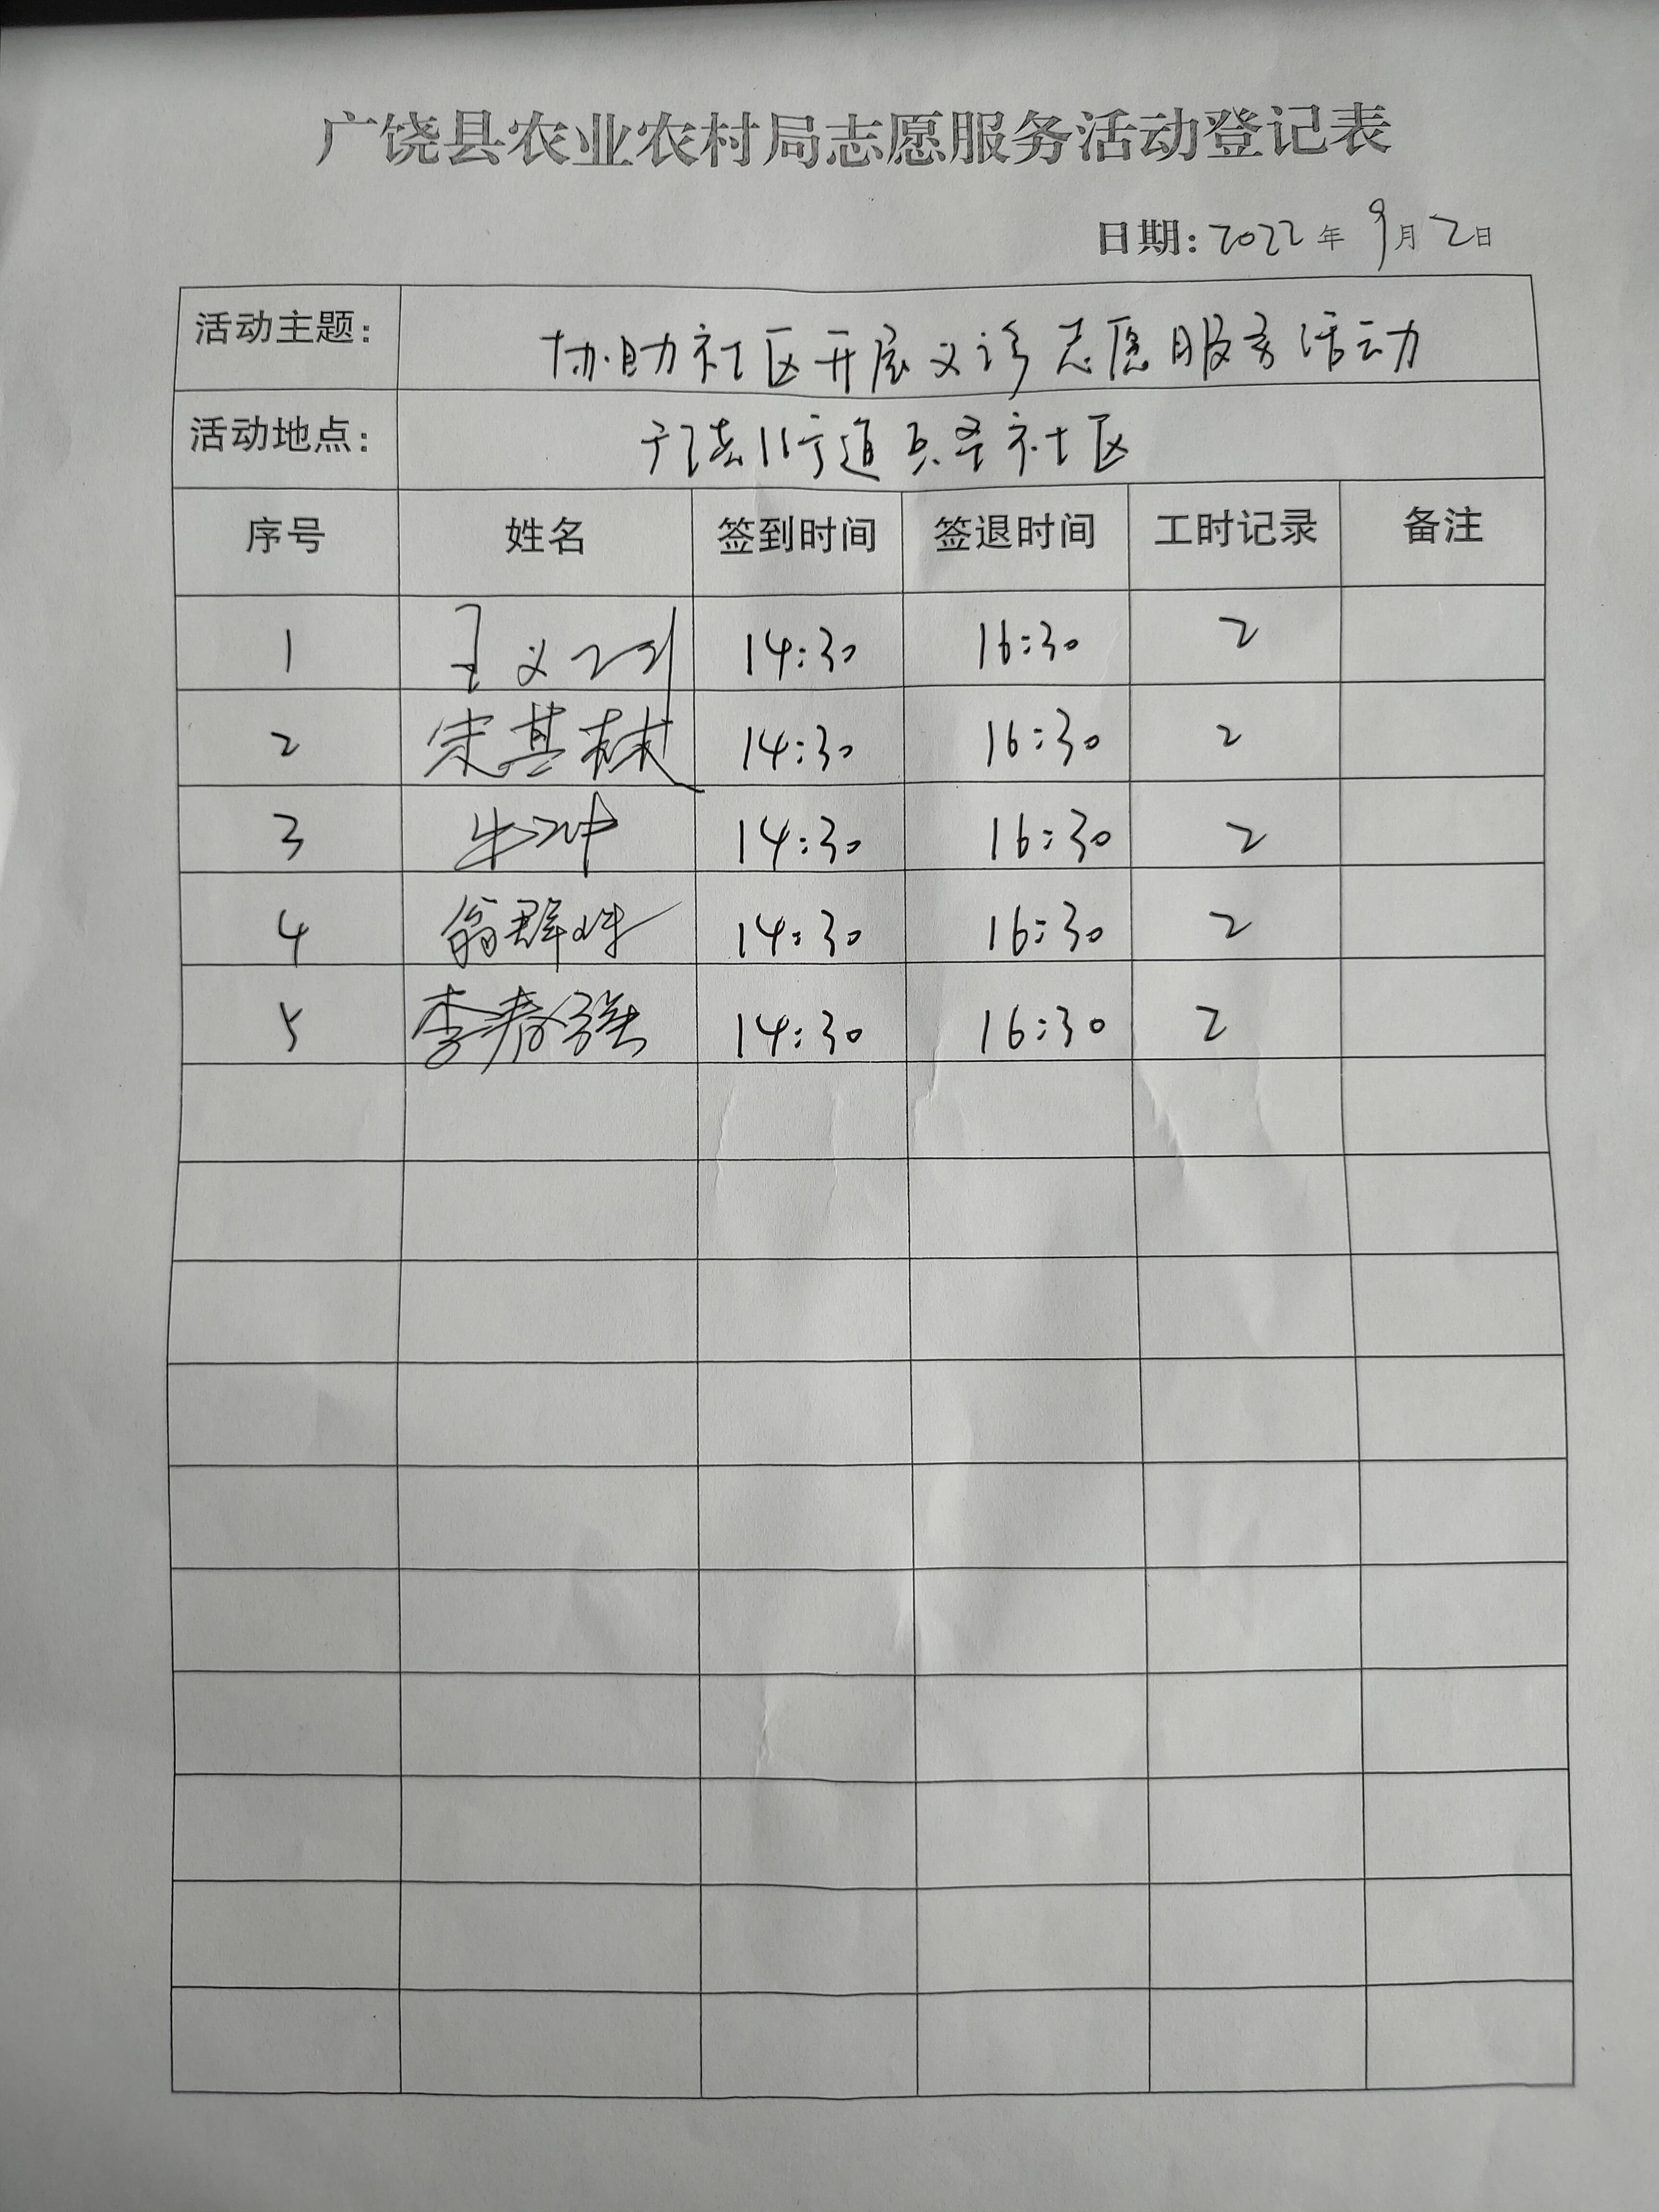 广饶县农业农村局志愿服务活动登记表
日期:2022年9月2日
活动主题: 协助社区开展义诊志愿服务活动
活动地点: 街道 社区
序号 姓名 签到时间 签退时间 工时记录 备注
1 王义 14:30 16:30 2
2 宋其林 14:30 16:30 2
3 牛冲 14:30 16:30 2
4 翁群峰 14:30 16:30 2
5 李春强 14:30 16:30 2